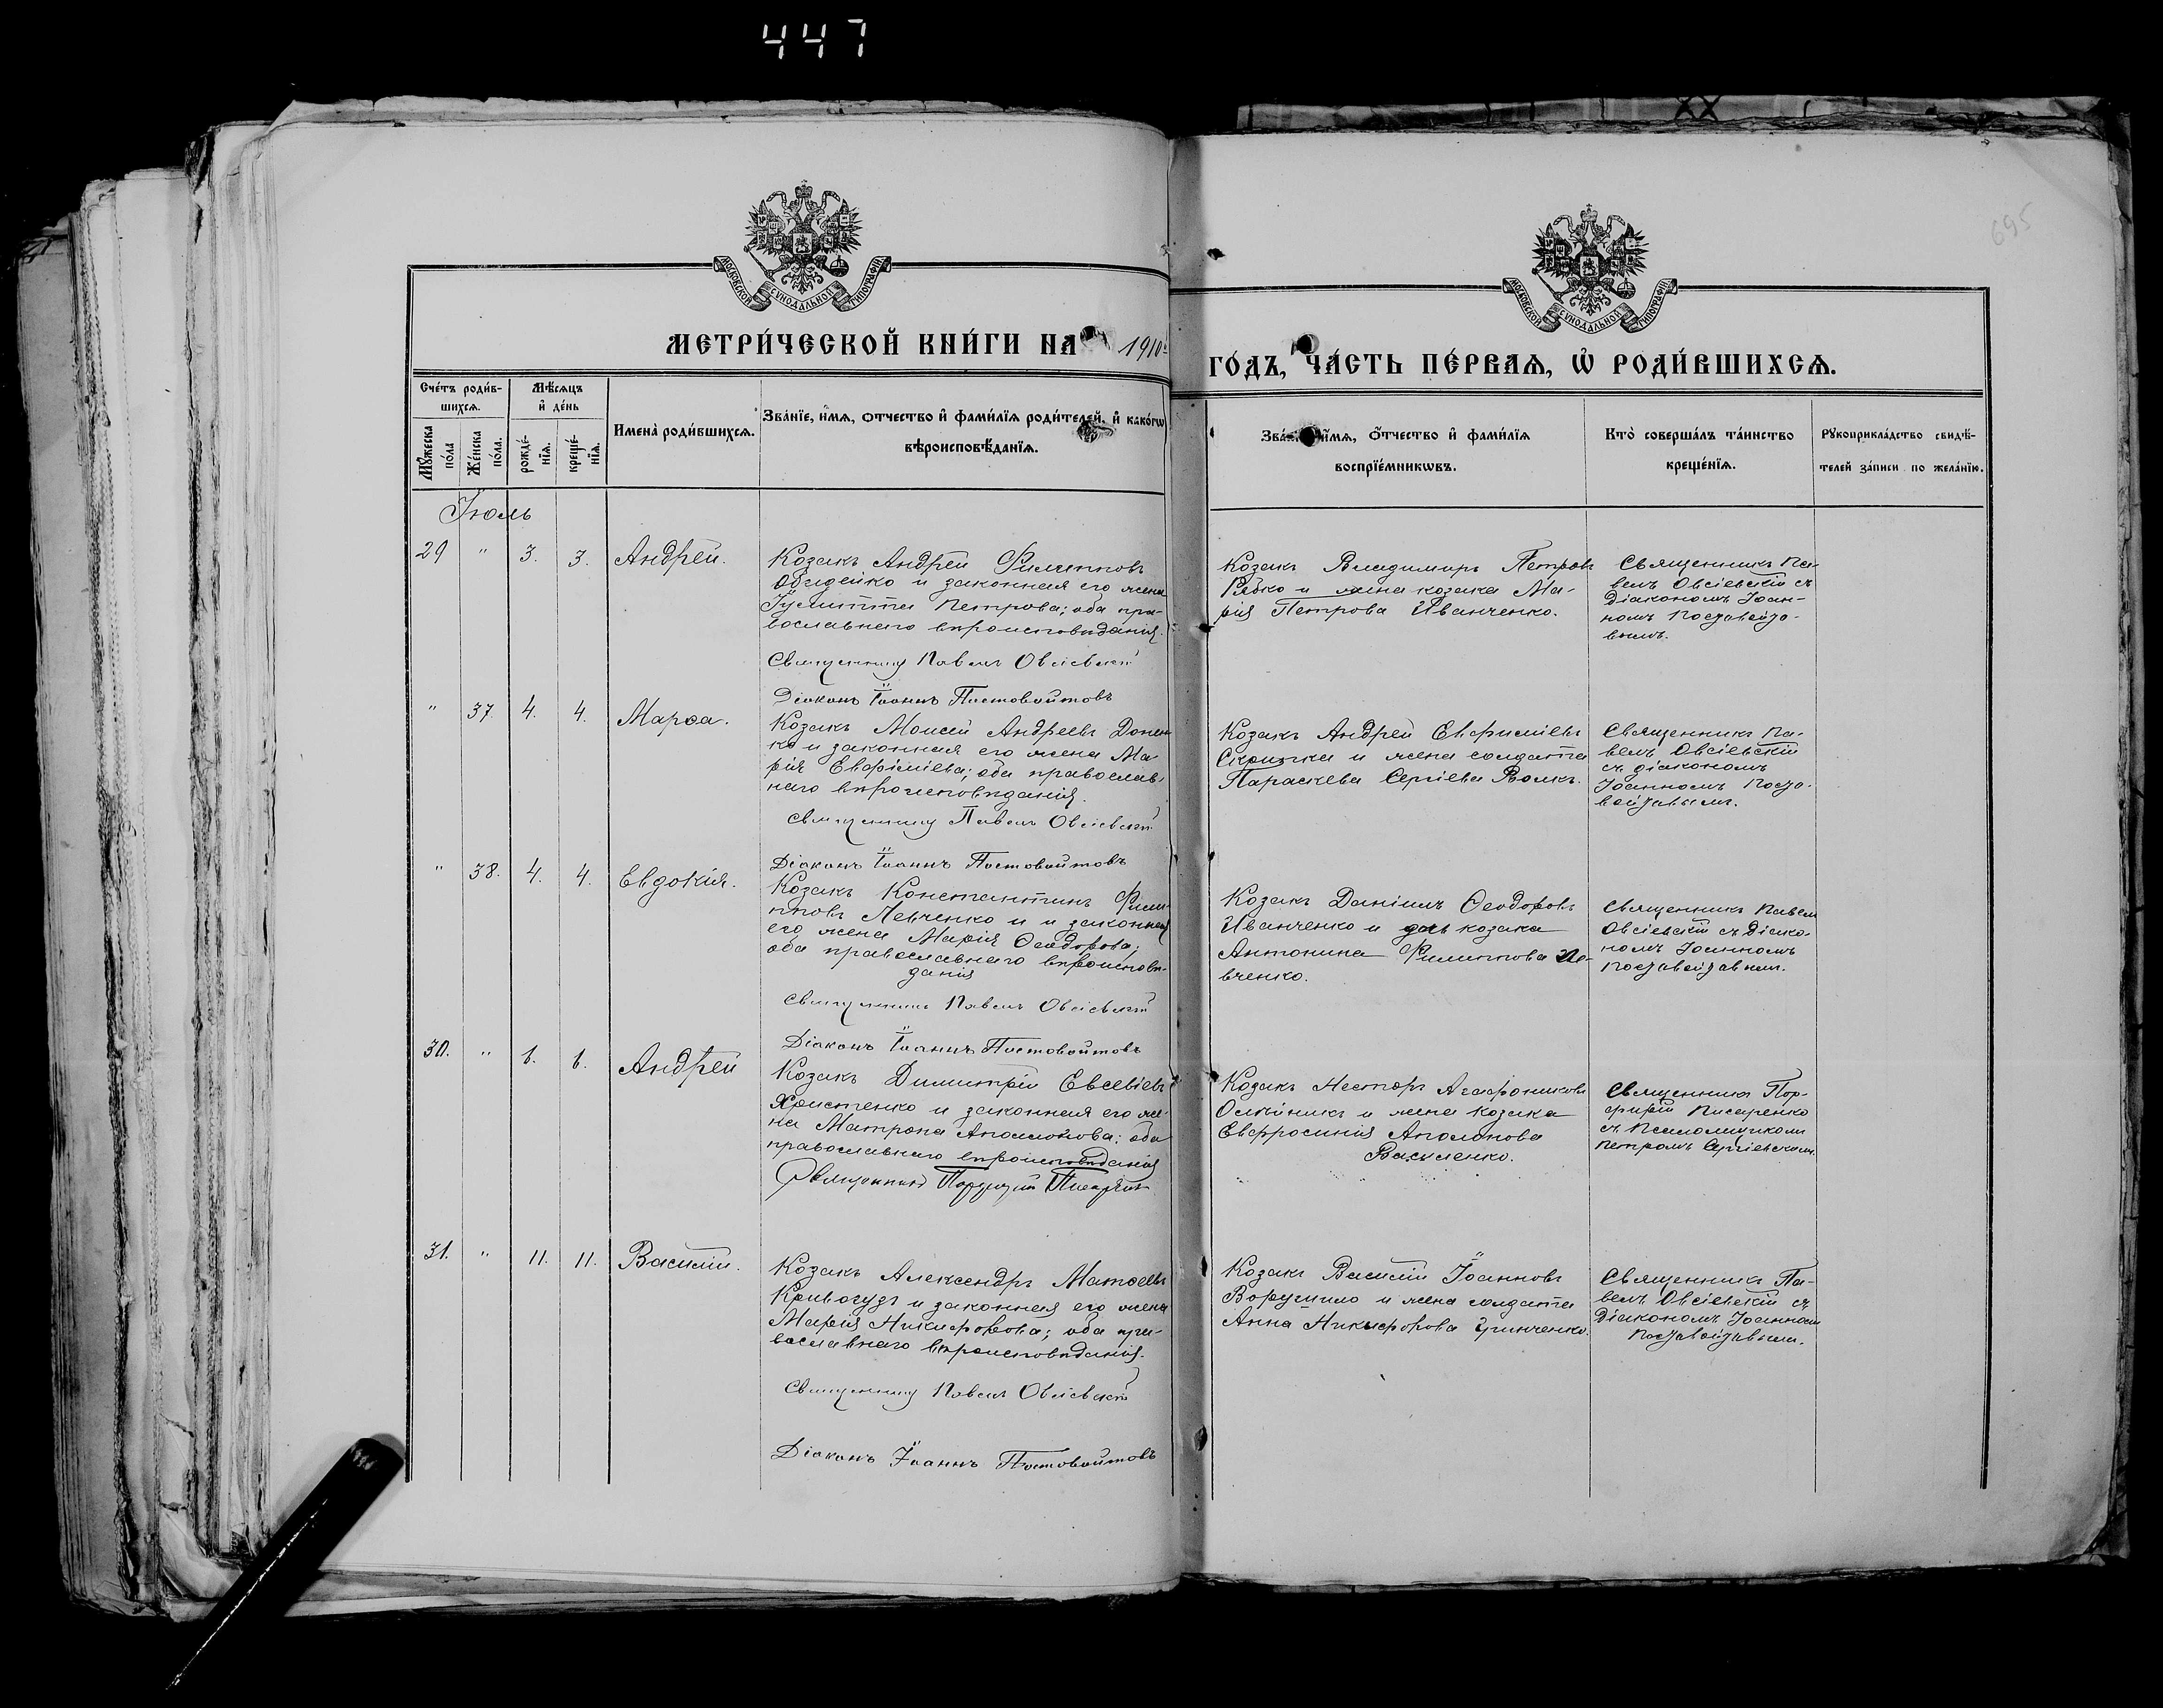 447
695
МОСКОВСКОЙ СѴНОДАЛЬНОЙ ТИПОГРАФІИ
МОСКОВСКОЙ СѴНОДАЛЬНОЙ ТИПОГРАФІИ
МЕТРИ́ЧЕСКОЙ КНИ́ГИ НА 1910
ГО́ДЪ, ЧА́СТЬ ПЕ́РВАѦ, Ѡ҆ РОДИ́ВШИХСѦ.
Сче́тъ роди́в-
шихсѧ.
Мѣ́сѧцъ
и҆ де́нь
Мꙋ́жеска
по́ла
Же́нска
по́ла.
рожде́-
нїѧ.
креще́-
нїѧ.
Имена̀ роди́вшихсѧ.
Зва́нїе, и҆́мѧ, ѻ҆́тчество и҆ фами́лїѧ роди́телей, и҆ како́гѡ
вѣроисповѣ́данїѧ.
и҆́мѧ, ѻ҆́тчество и҆ фами́лїѧ
воспрїе́мникѡвъ.
Кто̀ соверша́лъ та́инство
креще́нїѧ.
Рꙋкоприкла́дство свидѣ́-
телей за́писи по жела́нїю.
Іюль
29 " 3. 3. Андрей.
Козакъ Андрей Филипповъ
Обидейко и законная его жена
Іулитта Петрова; оба пра-
вославнаго вѣроисповѣданія.
Священникъ Павелъ Овсіевскій
Діаконъ Іоаннъ Постовойтовъ
Козакъ Владимиръ Петровъ
Рябко и жена козака Ма-
рія Петрова Иванченко.
Священникъ Па-
велъ Овсіевскій съ
Діакономъ Іоан-
номъ Постовойто-
вымъ.
" 37. 4. 4. Марѳа.
Козакъ Моисей Андреевъ Донен
ко и законная его жена Ма-
рія Евфиміева; оба православ-
наго вѣроисповѣданія.
Священникъ Павелъ Овсіевскій
Діаконъ Іоаннъ Постовойтовъ
Козакъ Андрей Евфиміевъ
и жена солдата
Параскева Сергіева Волкъ.
Священникъ Па-
велъ Овсіевскій
съ діакономъ
Іоанномъ Посто-
войтовымъ.
" 38. 4. 4. Евдокія.
Козакъ Константинъ Фили-
пповъ Левченко и и законная
его жена Марія Ѳеодорова;
оба православнаго вѣроисповѣ-
данія
Священникъ Павелъ Овсіевскій
Діаконъ Іоаннъ Постовойтовъ
Козакъ Даніилъ Ѳеодоровъ
Иванченко и дочь козака
Антонина Филиппова Ле-
вченко.
Священникъ Павелъ
Овсіевскій съ Діако-
номъ Іоанномъ
Постовойтовымъ.
30. " 6. 6. Андрей
Козакъ Димитрій Евсевіевъ
Христенко и законная его же-
на Матрона Аполлонова; оба
православнаго вѣроисповѣданія
Священникъ Порфирій Писаренко
Козакъ Несторъ Агафониковъ
Олейникъ и жена козака
Евфросинія Аполонова
Василенко.
Священникъ Пор-
фирій Писаренко
съ Псаломщикомъ
Петромъ Сергіевскимъ.
31. " 11. 11. Василій.
Козакъ Александръ Матѳеевъ
Кривогузъ и законная его жена
Марія Никифорова; оба пра-
вославнаго вѣроисповѣданія.
Священникъ Павелъ Овсіевскій
Діаконъ Іоаннъ Постовойтовъ
Козакъ Василій Іоанновъ
Ворушило и жена солдата
Анна Никифорова Гринченко.
Священникъ Па-
велъ Овсіевскій съ
Діакономъ Іоанномъ
Постовойтовымъ.